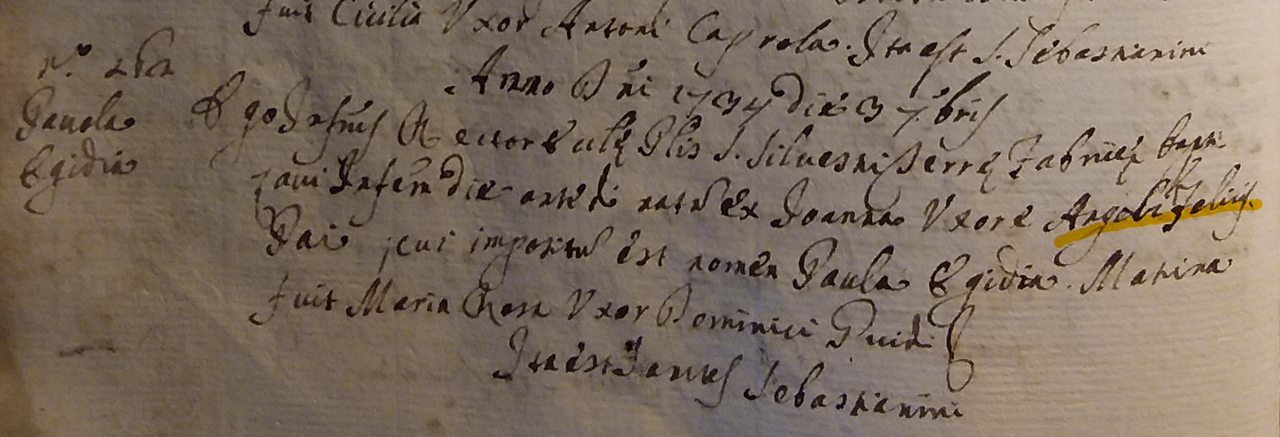 fuit Cicilia Uxor Antoni Caprola. Ita est S. Sebastianini
n.o 262
Anno Dni 1734 die 3 7bris
Paula
Egidia
Ego Infrus Rector Eccle Plis S. Siluestri Terre Fabrice bapti
zaui Infem die ante di natu ex Joanna Uxore Angeli Felicis
Pai cui impositu est nomen Paula Egidia. Matrina
fuit Maria Rosa Uxor Dominici Guidi
Ita est Sebastianini